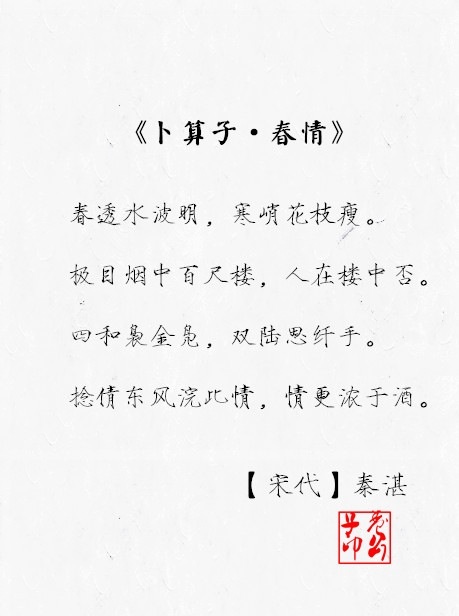 《卜算子·春情》
春透水波明，寒峭花枝瘦。
极目烟中百尺楼，人在楼中否。
四和袅金凫，双陆思纤手。
捻倩东风浣此情，情更浓于酒。
【宋代】秦湛